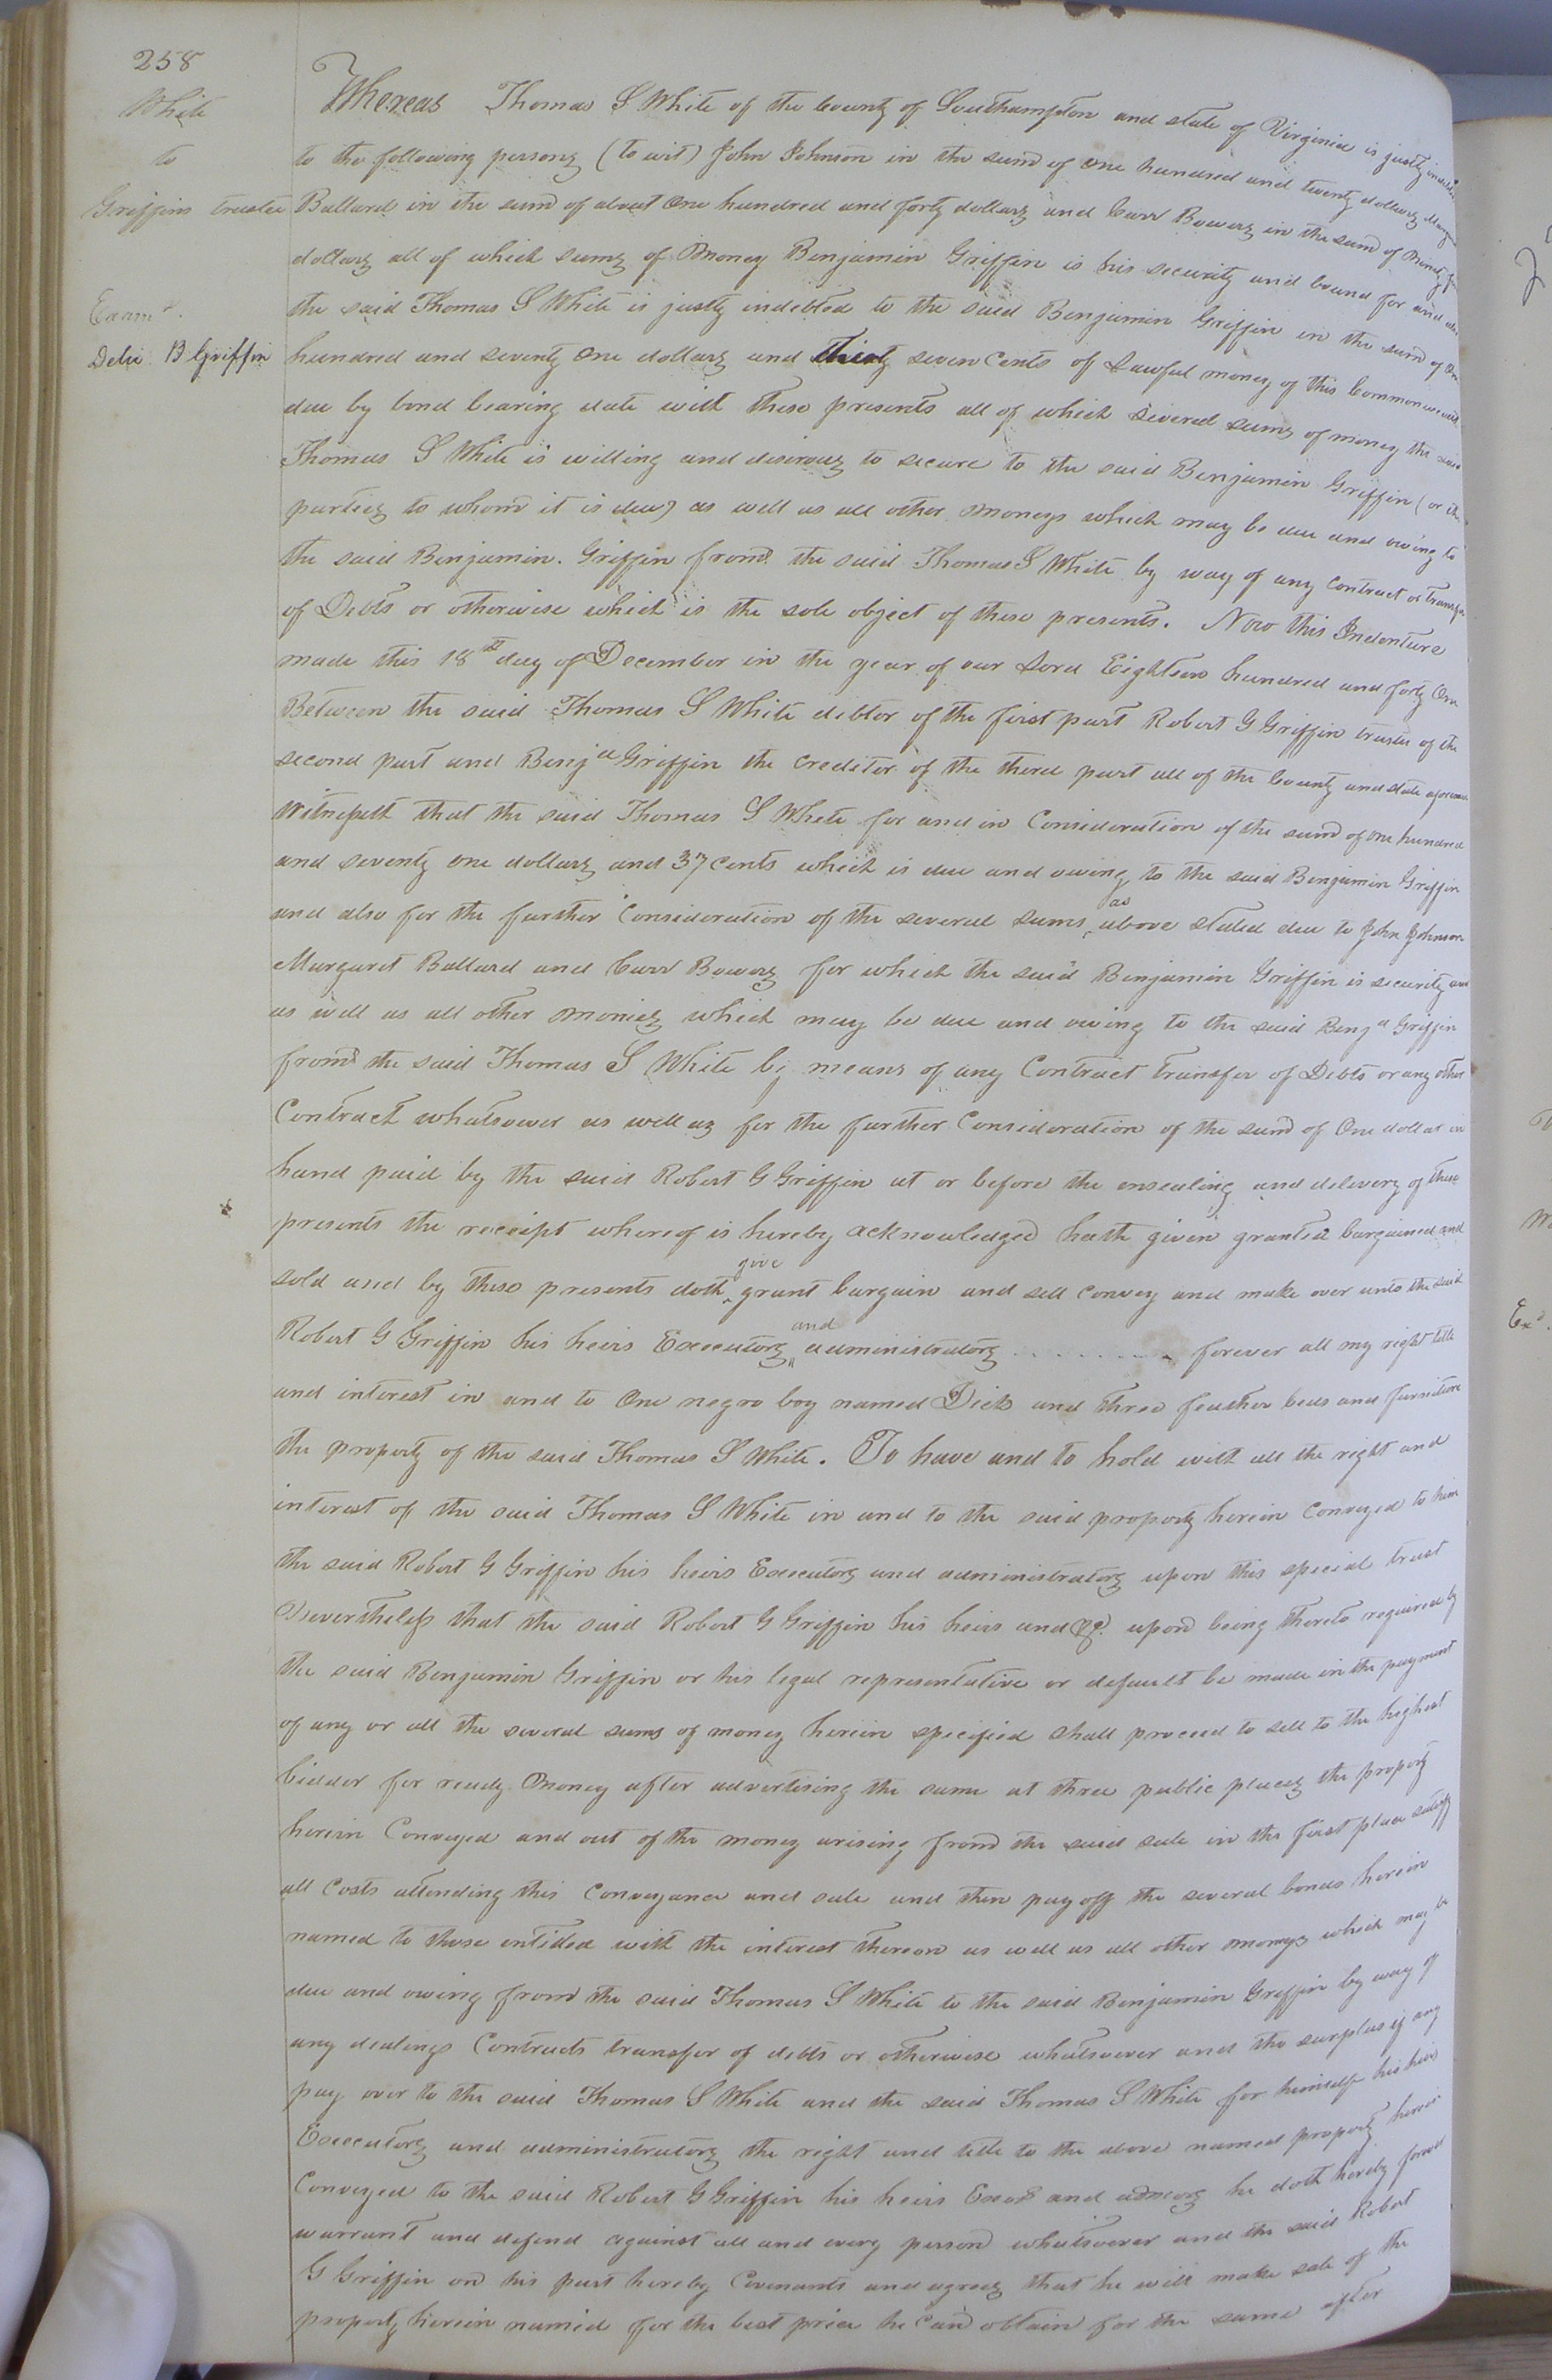 258
White
to
Griffins trustee
Exam^d.
Deliv B Griffin
Whereas Thomas S White of the County of Southampton and state of Virginia is justly indebted
to the following persons (to wit) John Johnson in the sum of one hundred and twenty dollars
Ballard in the sum of about One hundred and forty dollars and Carr Bowers in the sum of Ninety
dollars all of which sums of Money Benjamin Griffin is his security and bound for and
the said Thomas S White is justly indebted to the said Benjamin Griffin in the sum of One
hundred and seventy One dollars and thirty seven Cents of Lawful money of this Commonwealth
due by bond bearing date with these presents all of which several sums of money the said
Thomas S White is willing and desirous to secure to the said Benjamin Griffin (or the
parties to whom it is due) as well as all other moneys which may be due and owing to
the said Benjamin. Griffin from the said Thomas S White by way of any contract or transfer
of Debts or otherwise which is the sole object of these presents. Now this Indenture
made this 18th day of December in the year of our Lord Eighteen hundred and forty One
Between the said Thomas S White debtor of the first part Robert G Griffin trustee of the
second part and Benja Griffin the Creditor of the third part all of the County and state aforesaid
Witnesseth that the said Thomas S White for and in Consideration of the sum of one hundred
and seventy one dollars and 37 Cents which is due and owing to the said Benjamin Griffin
and also for the further Consideration of the several sums as above stated due to John Johnson
Margaret Ballard and Carr Bowers for which the said Benjamin Griffin is security and
as well as all other monies which may be due and owing to the said Benja Griffin
from the said Thomas S White by means of any Contract transfer of Debts or any other
Contract whatsoever as well as for the further Consideration of the sum of One dollar in
hand paid by the said Robert G Griffin at or before the ensealing and delivery of these
presents the receipt whereof is hereby acknowledged hath given granted bargained and
sold and by these presents doth give grant bargain and sell convey and make over unto the said
Robert G Griffin his heirs Executors and administrators . . . . . . . . forever all my right title
and interest in and to One negro boy named Dick and three feather beds and furniture
the property of the said Thomas S White. To have and to hold with all the right and
interest of the said Thomas S White in and to the said property herein Conveyed to him
the said Robert G Griffin his heirs Executors and administrators upon this special trust
Nevertheless that the said Robert G Griffin his heirs and &c. upon being thereto required by
the said Benjamin Griffin or his legal representative or default be made in the payment
of any or all the several sums of money herein specified shall proceed to sell to the highest
bidder for ready Money after advertising the same at three public places the property
herein Conveyed and out of the money arising from the said sale in the first place satisfy
all Costs attending this Conveyance and sale and then pay off the several bonds herein
named to those entitled with the interest thereon as well as all other moneys which may be
due and owing from the said Thomas S White to the said Benjamin Griffin by way of
any dealings Contracts transfer of debts or otherwise whatsoever and the surplus if any
pay over to the said Thomas S White and the said Thomas S White for himself his heirs
Executors and administrators the right and title to the above named property herein
Conveyed to the said Robert G Griffin his heirs Exors and admors he doth hereby forever
warrant and defend against all and every person whatsoever and the said Robert
G Griffin on his part hereby Covenants and agrees that he will make sale of the
property herein named for the best price he can obtain for the same after